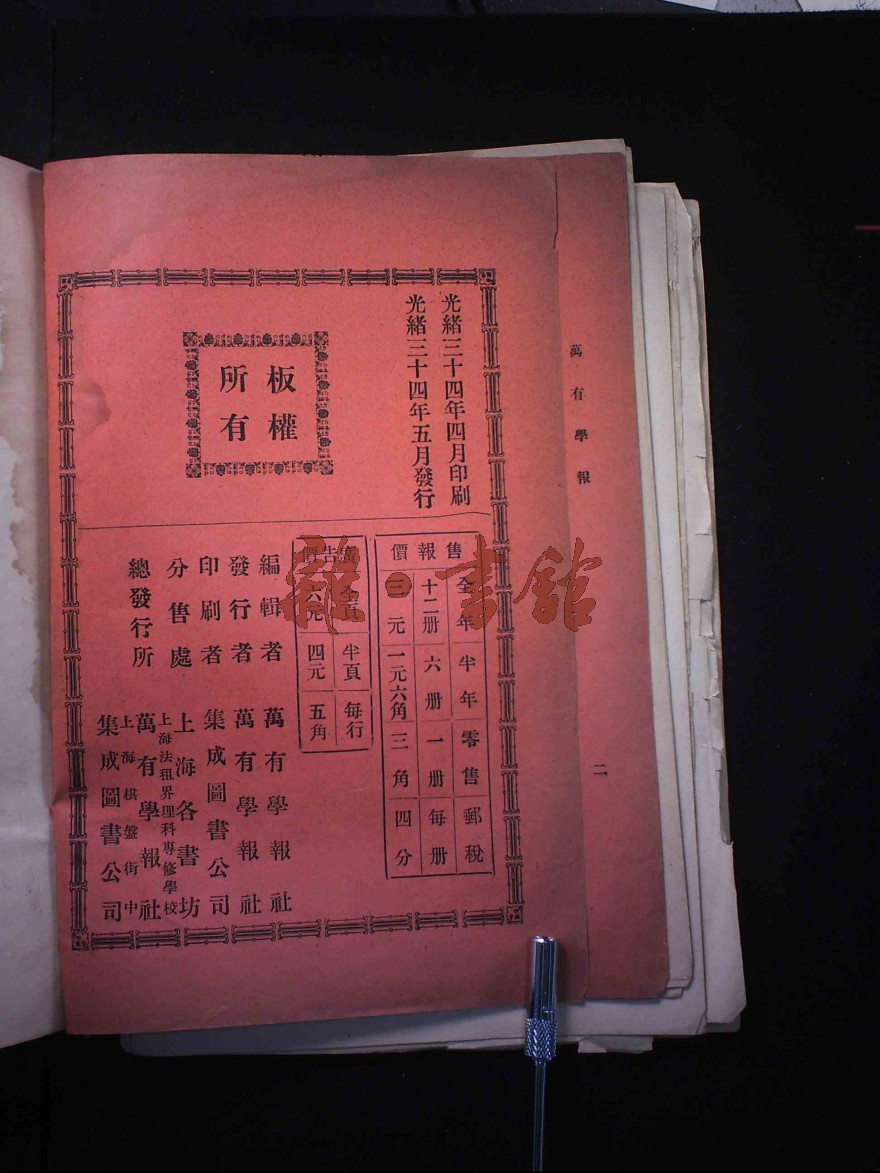 光緒三十四年四月印刷
光緒三十四年五月發行
板權
所有
售報價
全年 半年 零售 郵稅
十二册 六册 一册 每册
三元 一元六角 三角 四分
廣告價
全頁 半頁 每行
六元 四元 五角
編輯者 萬有學報社
發行者 萬有學報社
印刷者 集成圖書公司
分售處 上海各書坊
總發行所
上海法租界理科專修學校
萬有學報社
上海棋盤街中
集成圖書公司
萬有學報
二
雜·書館